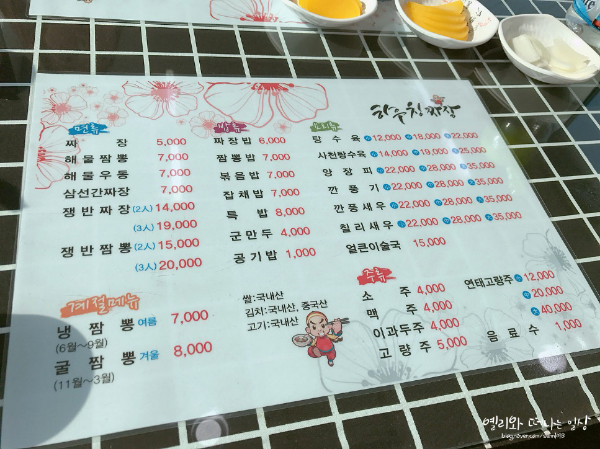 하루친짜장
면류
짜 장 5,000
해물짬뽕 7,000
해물우동 7,000
삼선간짜장 7,000
쟁반짜장 (2人) 14,000
(3人) 19,000
쟁반짬뽕 (2人) 15,000
(3人) 20,000
밥류
짜장밥 6,000
짬뽕밥 7,000
볶음밥 7,000
잡채밥 7,000
특 밥 8,000
군만두 4,000
공기밥 1,000
요리류
탕수육 소12,000 중18,000 대22,000
사천탕수육 소14,000 중19,000 대25,000
양장피 소22,000 중28,000 대35,000
깐풍기 소22,000 중28,000 대35,000
깐풍새우 소22,000 중28,000 대35,000
칠리새우 소22,000 중28,000 대35,000
얼큰이술국 15,000
계절메뉴
냉짬뽕 여름 7,000
(6월~9월)
굴짬뽕 겨울 8,000
(11월~3월)
쌀:국내산
김치:국내산, 중국산
고기:국내산
주류
소 주 4,000
맥 주 4,000
이과두주 4,000
고량주 5,000
연태고량주 소12,000
중20,000
대40,000
음료수 1,000
옐리와 떠나는 일상